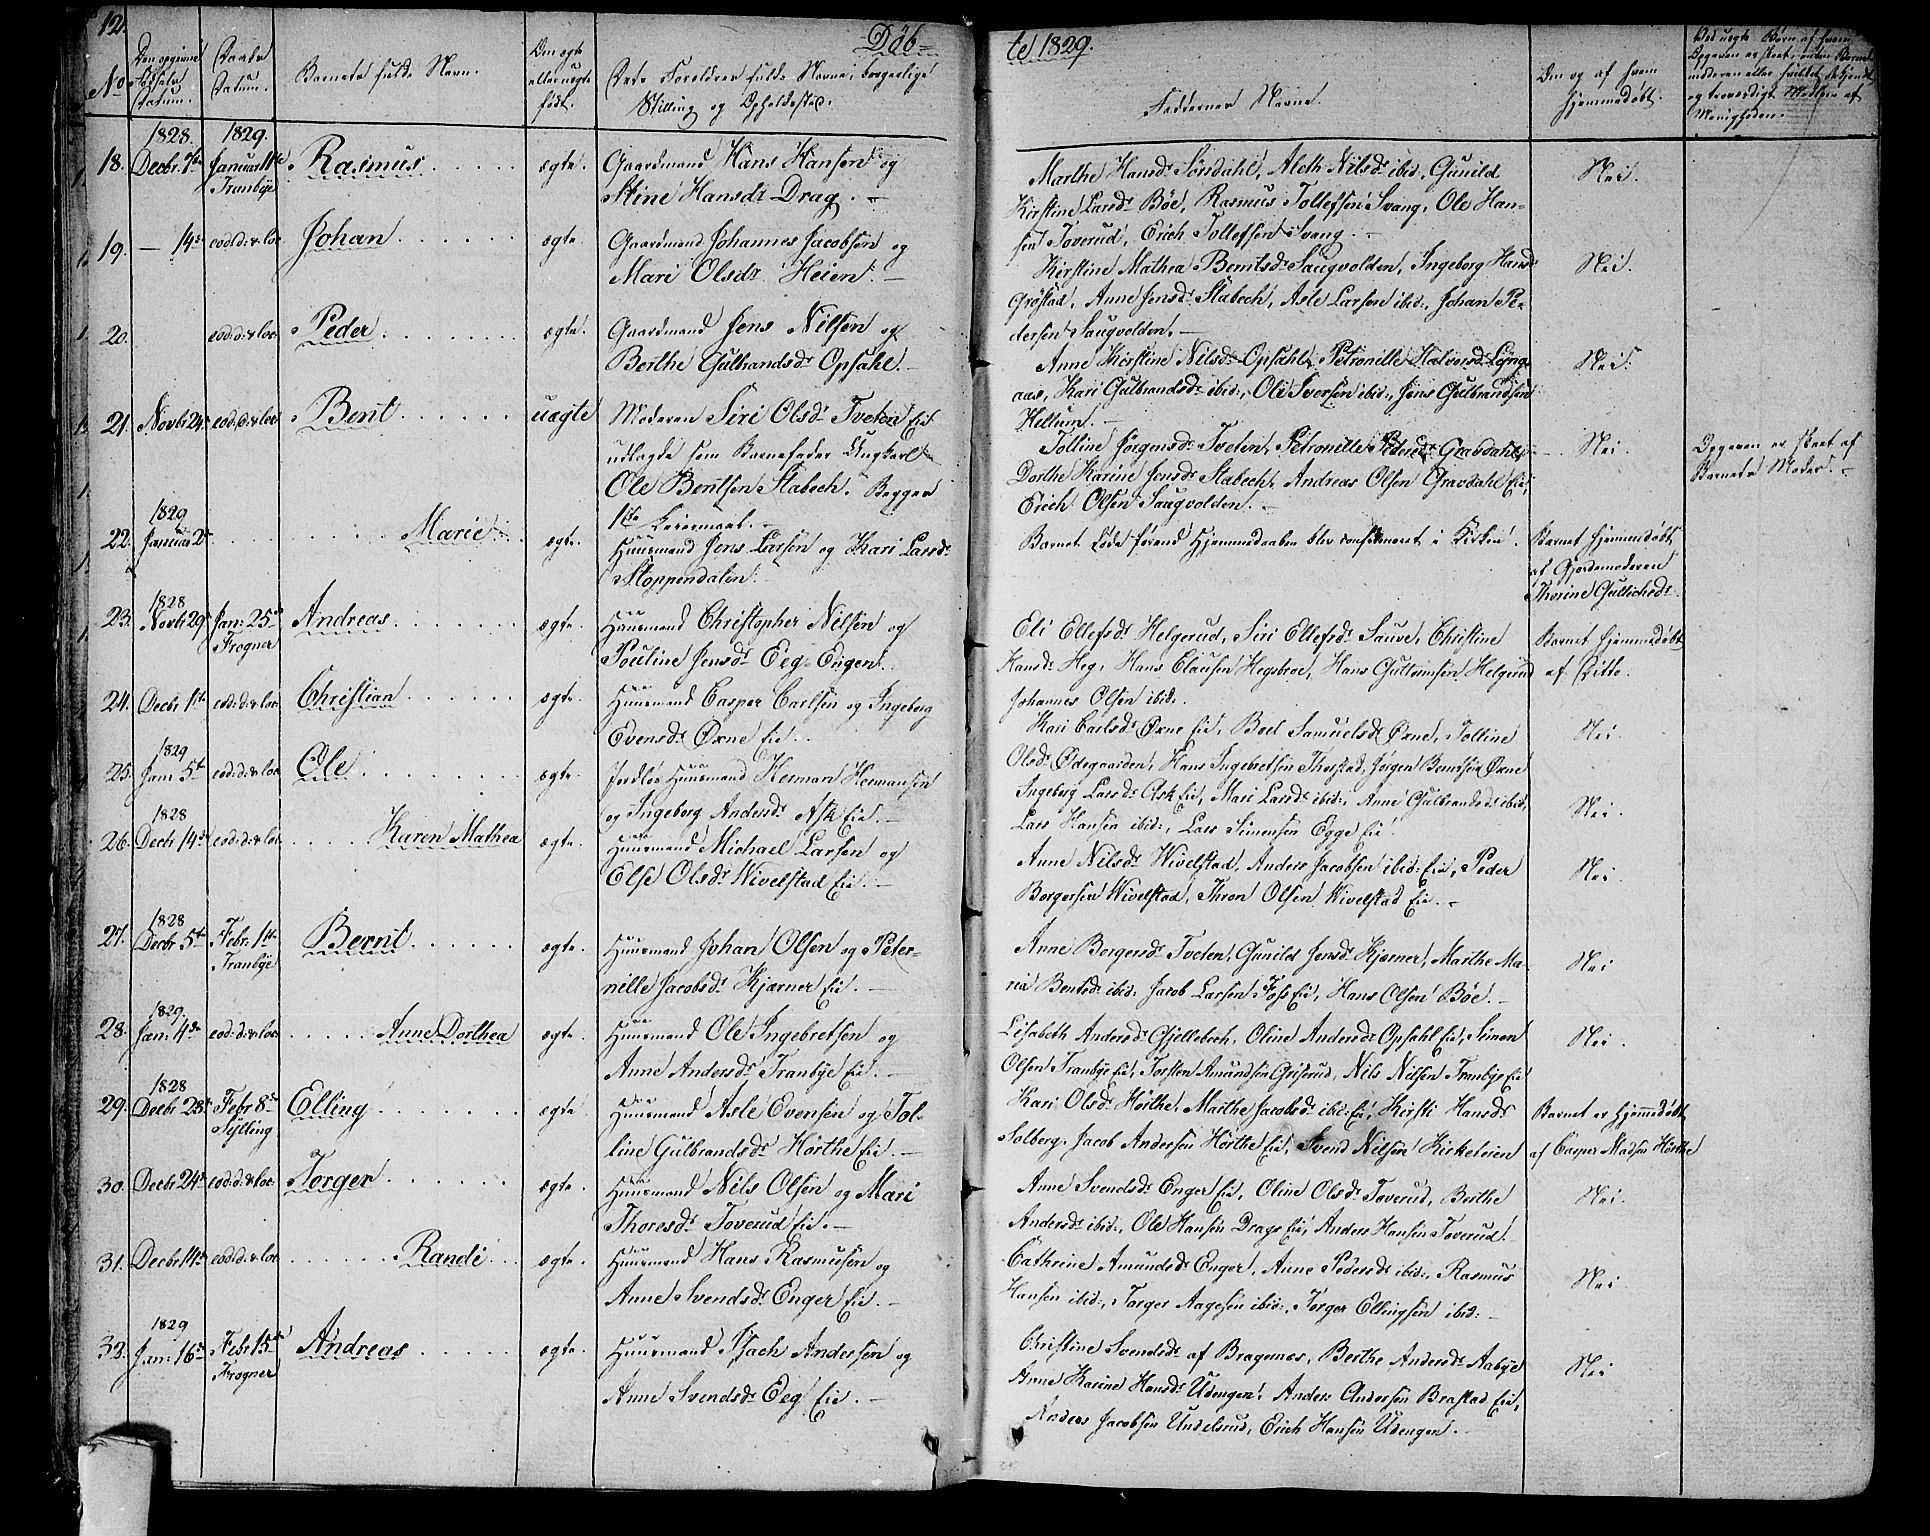 12.
Døb-
te 1829.
No
Den opgivne Fødsels Datum.
Daabs Datum.
Barnets fulde Navn.
Om ægte eller uægte født.
Dets Forældres fulde Navne, borgerlige
Stilling og Opholdssted.
Faddernes Navne.
Om og af hvem
hjemmedøbt.
Ved uægte Børn af hvem
Opgaven er skeet, enten Barne-
moderen eller hvilket bekjendt
og troværdigt Medlem af
Menigheden.
1828. 1829.
18. Decbr 7de Januar 11te Rasmus ægte. Gaardmand Hans Hansen og
Tranbye Stine Hansdr Drag.
Marthe Hansdr Sørsdahl, Aleth Nilsdr ibid:, Gunild
Kirstine Larsdr Bøe, Rasmus Tollefsen Svang, Ole Han-
sen Toverud, Erich Tollefsen Svang.
Nei.
19. — 14de eod: d: & loc: Johan ægte. Gaardmand Johannes Jacobsen og
Mari Olsdr Heien.
Kirstine Mathea Berntsdr Saugvolden, Ingeborg Hansdr
Grøstad, Anne Jensdr Stabech, Asle Larsen ibid:, Johan Pe-
dersen Saugvolden.
Nei.
20. eod: d: & loc: Peder ægte. Gaardmand Jens Nilsen og
Berthe Gulbrandsdr Opsahl.
Anne Kirstine Nilsdr Opsahl, Petronille Halvorsdr Lyng-
aas, Kari Gulbrandsdr ibid:, Ole Iversen ibid:, Jens Gulbrandsen
Hellum.
Nei.
21. Novbr 24de eod: d: & loc: Bent uægte Moderen Siri Olsdr Tveten Eie
udlagde som Barnefader Ungkarl
Ole Bentsen Stabech. Begges
1ste Leiermaal.
Tolline Jørgensdr Tveten, Petronille Pedersdr Gravdahl,
Dorthe Karine Jensdr Stabech, Andreas Olsen Gravdahl Eie,
Erich Olsen Saugvolden.
Nei.
Opgaven er skeet af
Barnets Moder.
1829
22. Januar 2de Marie ægte. Huusmand Jens Larsen og Kari Larsdr
Stoppendalen.
Barnet døde førend Hjemmedaaben blev confirmeret i Kirken.
Barnet hjemmedøbt
af Gjordemoderen
Thorine Gullichsdr
1828
23. Novbr 29de Jan: 25de Andreas ægte. Huusmand Christopher Nilsen og
Frogner Pouline Jensdr Eeg-Engen.
Eli Ellefsdr Helgerud, Siri Ellefsdr Sauve, Christine
Hansdr Heg, Hans Clausen Hegsbroe, Hans Guttormsen Helgerud
Johannes Olsen ibid:.
Barnet hjemmedøbt
af Ditto.
24. Decbr 1ste eod: d: & loc: Christian ægte. Huusmand Casper Carlsen og Ingeborg
Evensdr Øxne Eie.
Kari Carlsdr Øxne Eie, Boel Samuelsdr Øxne, Tolline
Olsdr Ødegaarden, Hans Ingebretsen Thorstad, Jørgen Berntsen Øxne
Nei.
1829
25. Jan: 5te eod: d: & loc: Ole ægte. Jordløs Huusmand Herman Hermansen
og Ingeborg Andersdr Ask Eie.
Ingeborg Larsdr Ask Eie, Mari Larsdr ibid:, Anne Gulbrandsdr ibid:,
Lars Hansen ibid:, Lars Simensen Egge Eie.
Nei.
1828
26. Decbr 14de eod: d: & loc: Karen Mathea ægte. Huusmand Michael Larsen og
Else Olsdr Wivelstad Eie.
Anne Nilsdr Wivelstad, Anders Jacobsen ibid: Eie, Peder
Borgersen Wivelstad, Thron Olsen Wivelstad Eie.
Nei.
1828
27. Decbr 5te Febr. 1ste Bernt ægte. Huusmand Johan Olsen og Peter-
Tranbye nille Jacobsdr Kjærner Eie.
Anne Borgersdr Tveten, Gunild Jensdr Kjærner, Marthe Ma-
ria Bentsdr ibid: Jacob Larsen Foss Eie, Hans Olsen Bøe.
Nei
1829.
28. Jan: 4de eod: d: & loc: Anne Dorthea ægte. Huusmand Ole Ingebretsen og
Anne Andersdr Tranbye Eie.
Lisabeth Andersdr Gjellebech, Oline Andersdr Opsahl Eie, Simen
Olsen Tranbye Eie, Torsten Amundsen Griserud, Nils Nilsen Tranbye Eie
Nei.
1828
29. Decbr 28de Febr 8de Elling ægte. Huusmand Asle Evensen og Tol-
Sylling line Gulbrandsdr Hørthe Eie.
Kari Olsdr Hørthe, Marthe Jacobsdr ibid: Eie, Kirsti Hansdr
Solberg, Jacob Andersen Hørthe Eie, Svend Nilsen Kirkeleien
Barnet er hjemmedøbt
af Casper Madsen Hørthe
30. Decbr 24de eod: d: & loc: Torger ægte. Huusmand Nils Olsen og Mari
Thoresdr Toverud Eie.
Anne Svendsdr Enger Eie, Oline Olsdr Toverud, Berthe
Andersdr ibid:, Ole Hansen Drags Eie, Anders Hansen Toverud.
Nei.
31. Decbr 14de eod: d: & loc: Randi ægte. Huusmand Hans Rasmusen og
Anne Svendsdr Enger Eie.
Cathrine Amundsdr Enger, Anne Pedersdr ibid:, Rasmus
Hansen ibid:, Torger Aagesen ibid:, Torger Ellingsen ibid:
Nei.
1829
32. Jan: 16de Febr 15de Andreas ægte. Huusmand Isach Andersen og
Frogner Anne Svendsdr Eeg Eie.
Christine Svendsdr af Bragernes, Berthe Andersdr Aabye
Anne Karine Hansdr Udengen, Anders Andersen Brastad Eie,
Anders Jacobsen Undelsrud, Erich Hansen Udengen.
Nei